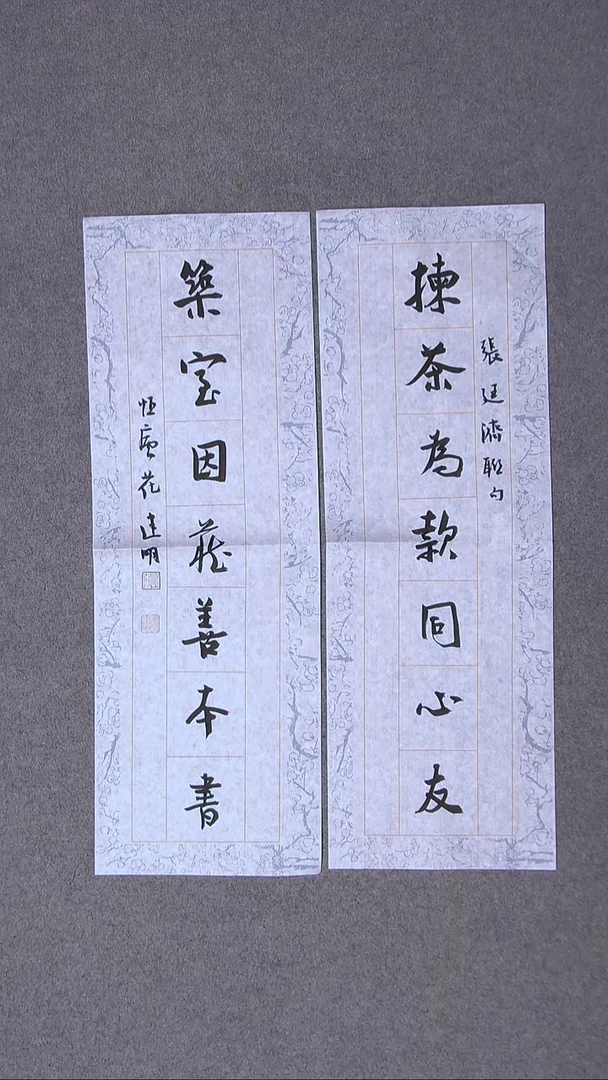 張廷濟聯句
揀茶為款同心友
築室因藏善本書
恒廬花建明